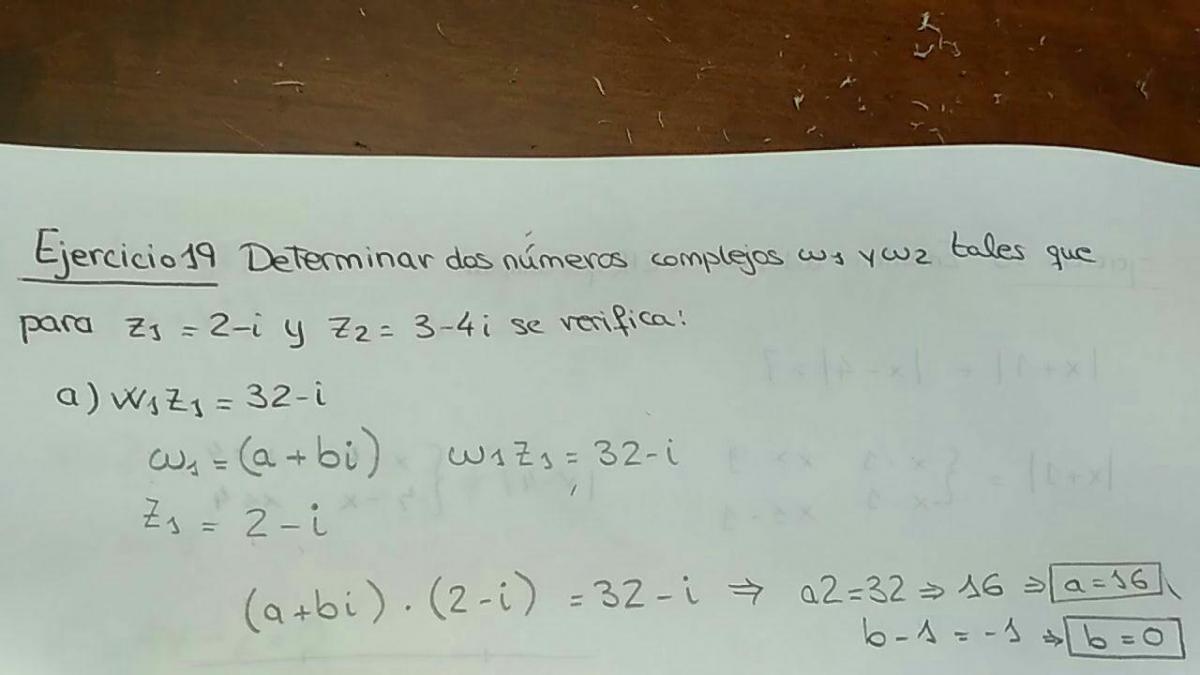 Ejercicio 19 Determinar dos números complejos ω1 y ω2 tales que
para z1 = 2-i y z2 = 3-4i se verifica:
a) w1z1 = 32-i
ω1 = (a+bi) ω1z1 = 32-i
z1 = 2-i
(a+bi)·(2-i) = 32-i ⇒ a2=32 ⇒ 16 ⇒ a=16
b-1 = -1 ⇒ b=0